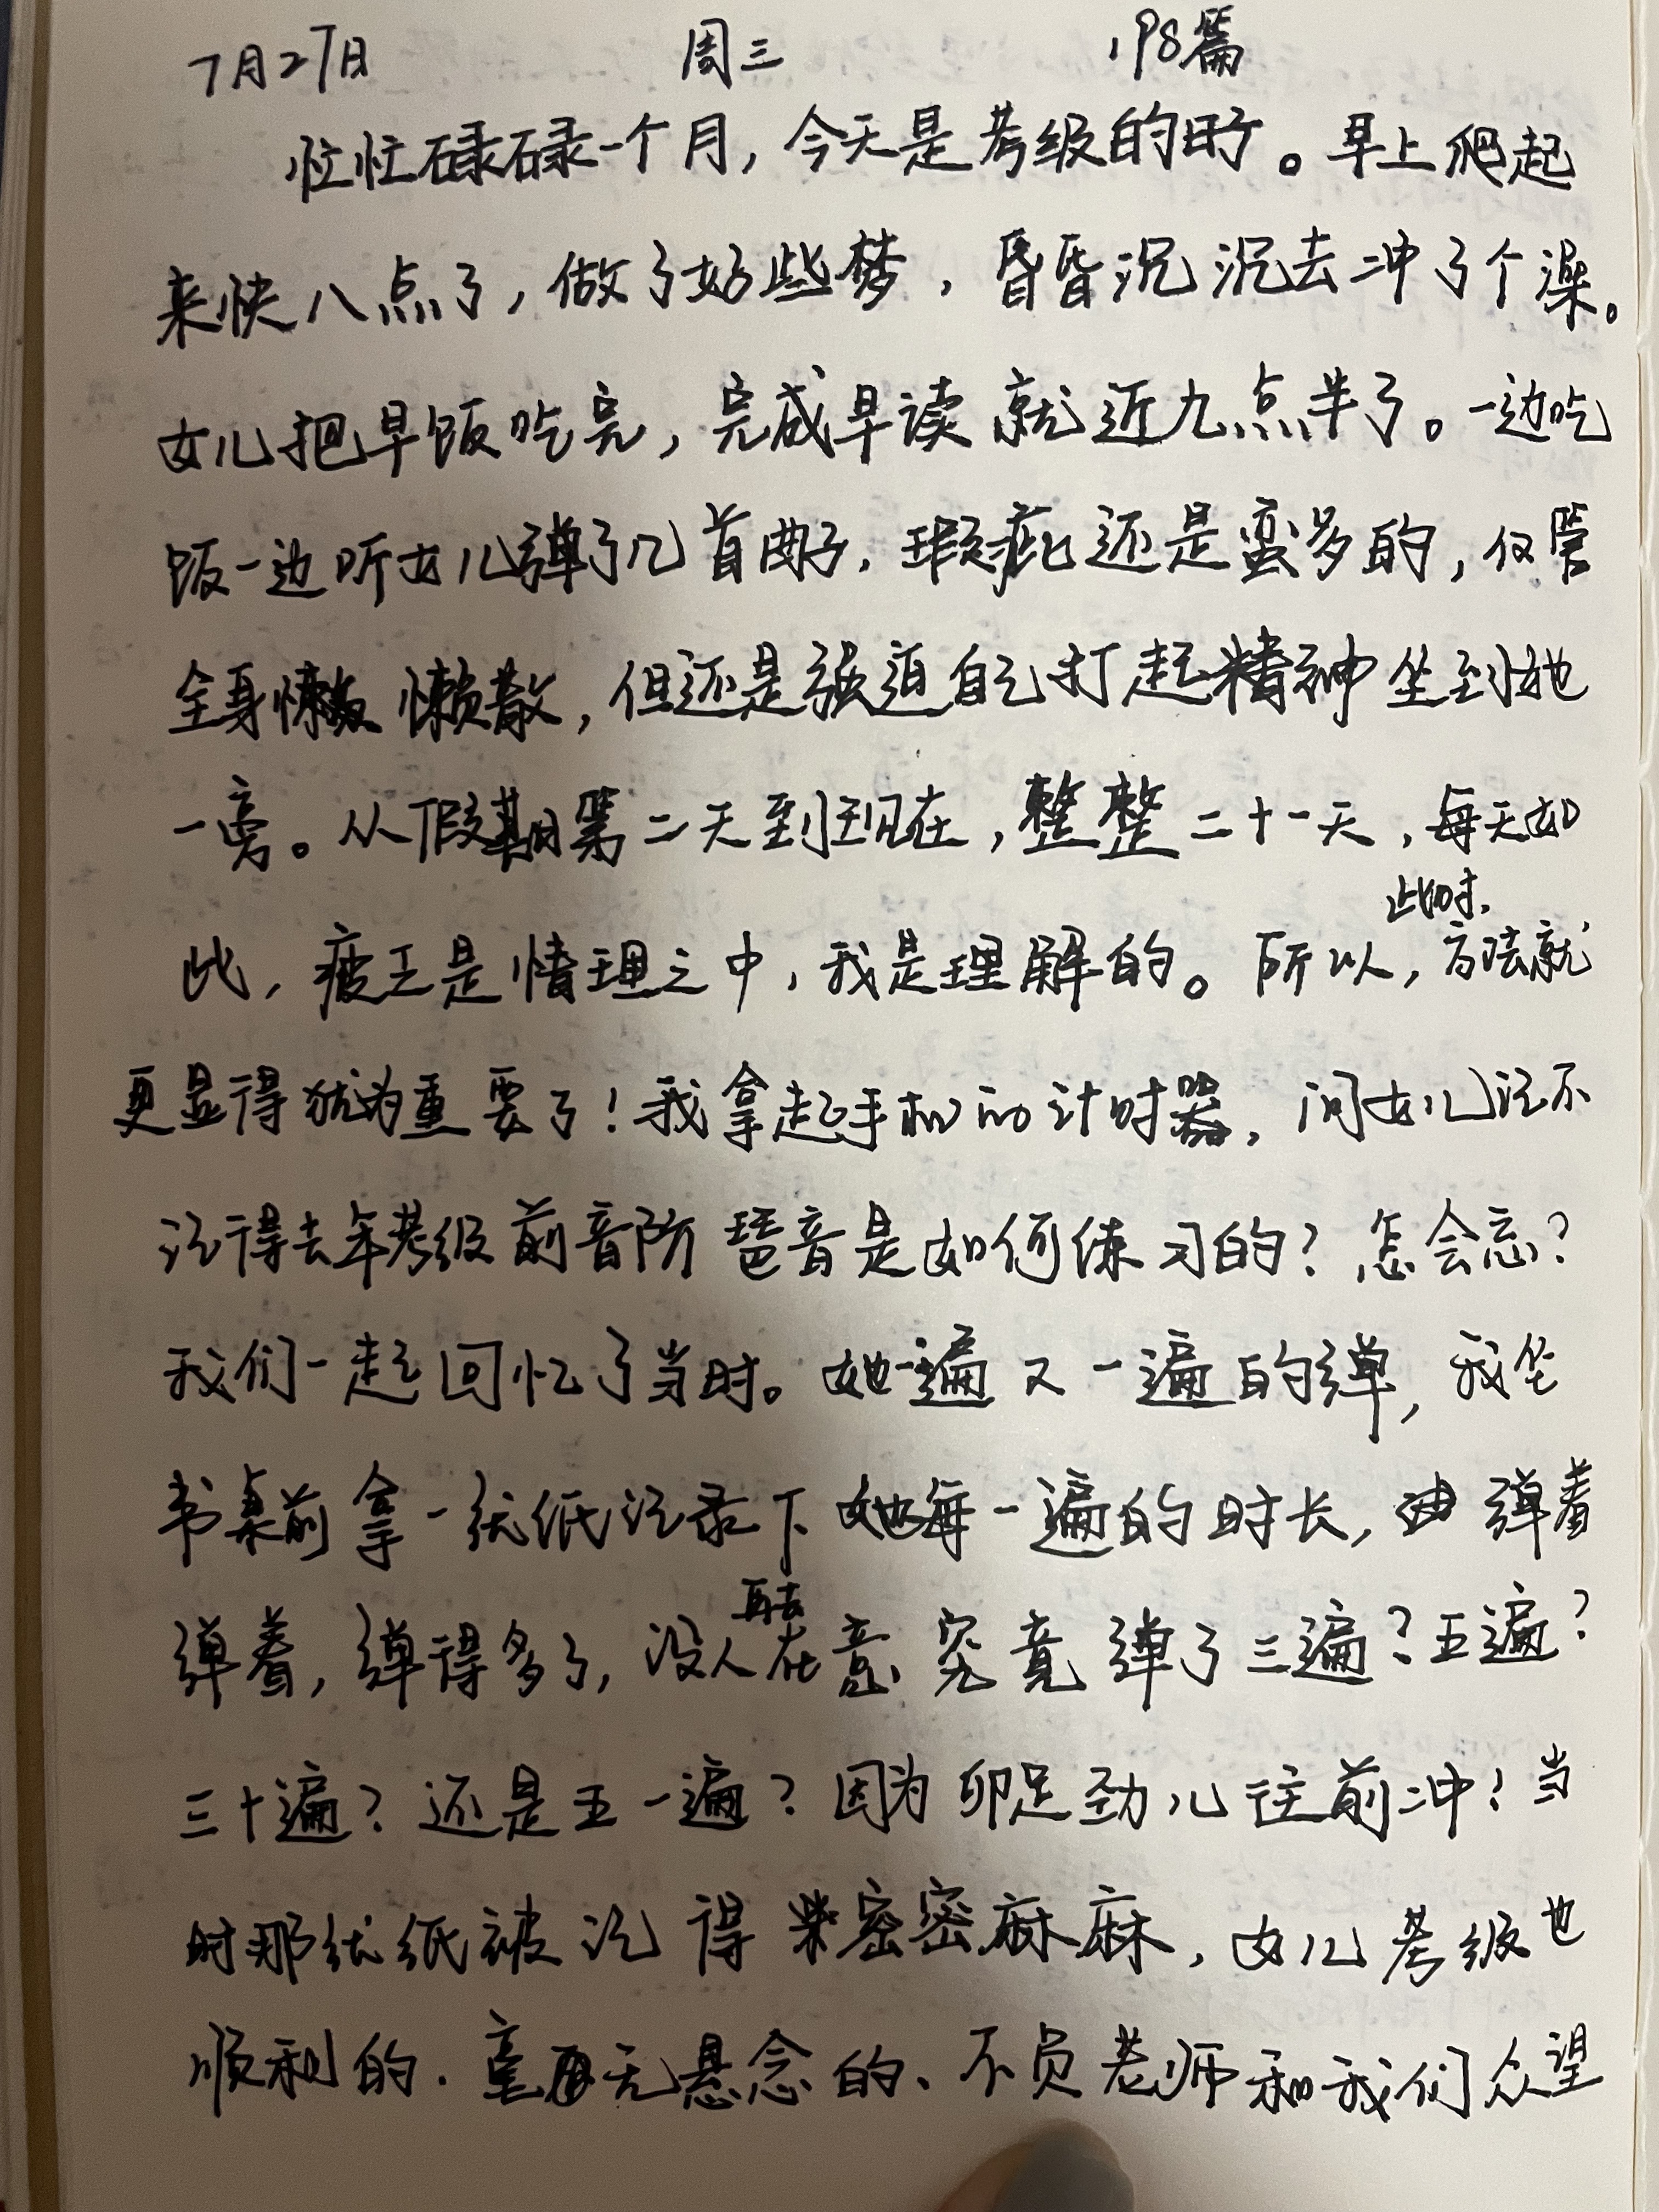 7月27日 周三 198篇
忙忙碌碌一个月，今天是考级的日子。早上爬起
来快八点了，做了好些梦，昏昏沉沉去冲了个澡。
女儿把早饭吃完，完成早读就近九点半了。一边吃
饭一边听女儿弹了几首曲子，瑕疵还是蛮多的，仅管
全身懒散，但还是强迫自己打起精神坐到她
一旁。从假期第二天到现在，整整二十一天，每天如
此，疲乏是情理之中，我是理解的。所以，此时，方法就
更显得犹为重要了！我拿起手机的计时器，问女儿记不
记得去年考级前音阶琶音是如何练习的？怎会忘？
我们一起回忆了当时。她一遍又一遍的弹，我坐
书桌前拿一张纸记录下她每一遍的时长，弹着
弹着，弹得多了，没人再去在意究竟弹了三遍？五遍？
三十遍？还是五一遍？因为卯足劲儿往前冲！当
时那张纸被记得密密麻麻，女儿考级也
顺利的、毫无悬念的、不负老师和我们众望